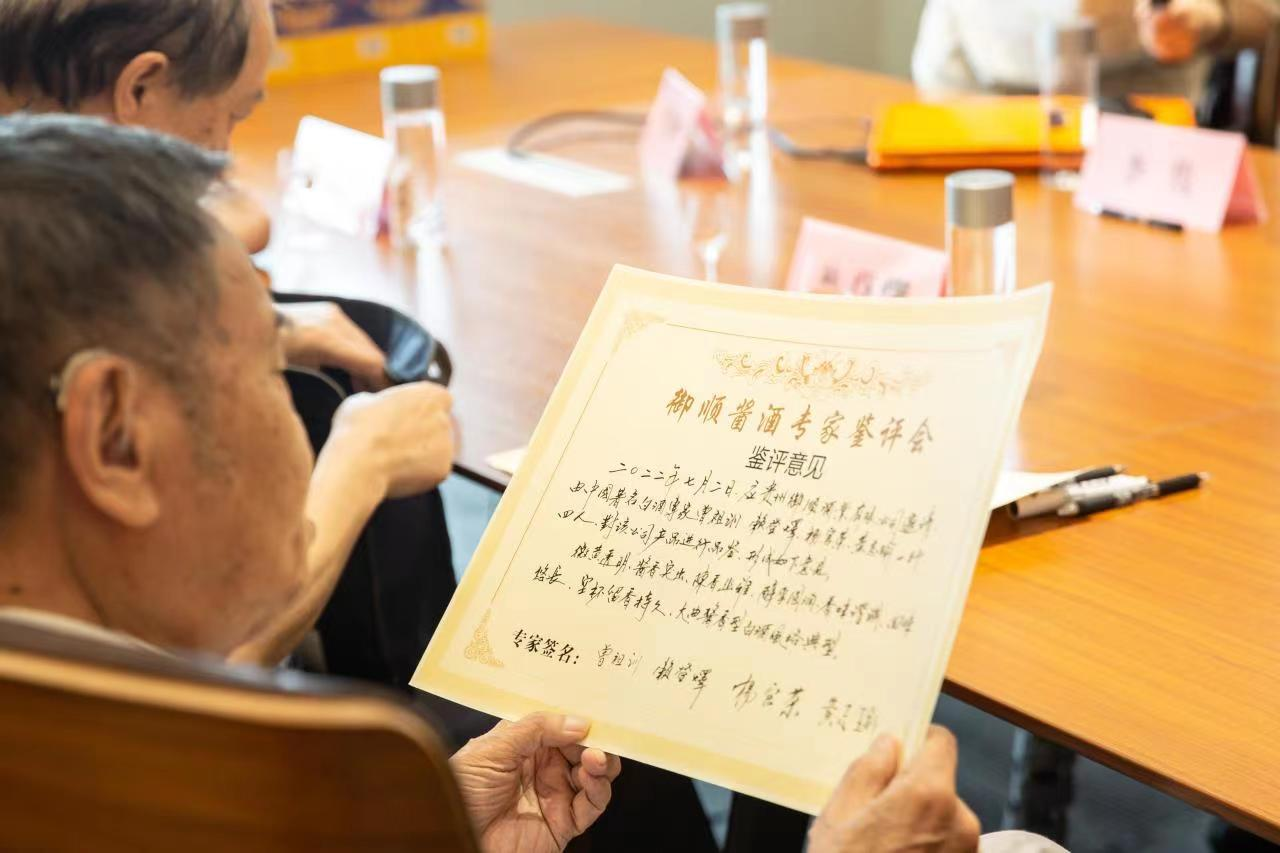 御顺酱酒专家鉴评会
鉴评意见
二〇二二年七月二日,应贵州御顺酒业有限公司邀请
由中国著名白酒专家曾祖训、赖登燡、杨官荣、黄志瑜一行
四人,对该公司产品进行品鉴,形成如下意见:
微黄透明,酱香突出,陈香幽雅,醇厚圆润,香味谐调,回味
悠长,空杯留香持久,大曲酱香型白酒风格典型。
专家签名:曾祖训 赖登燡 杨官荣 黄志瑜